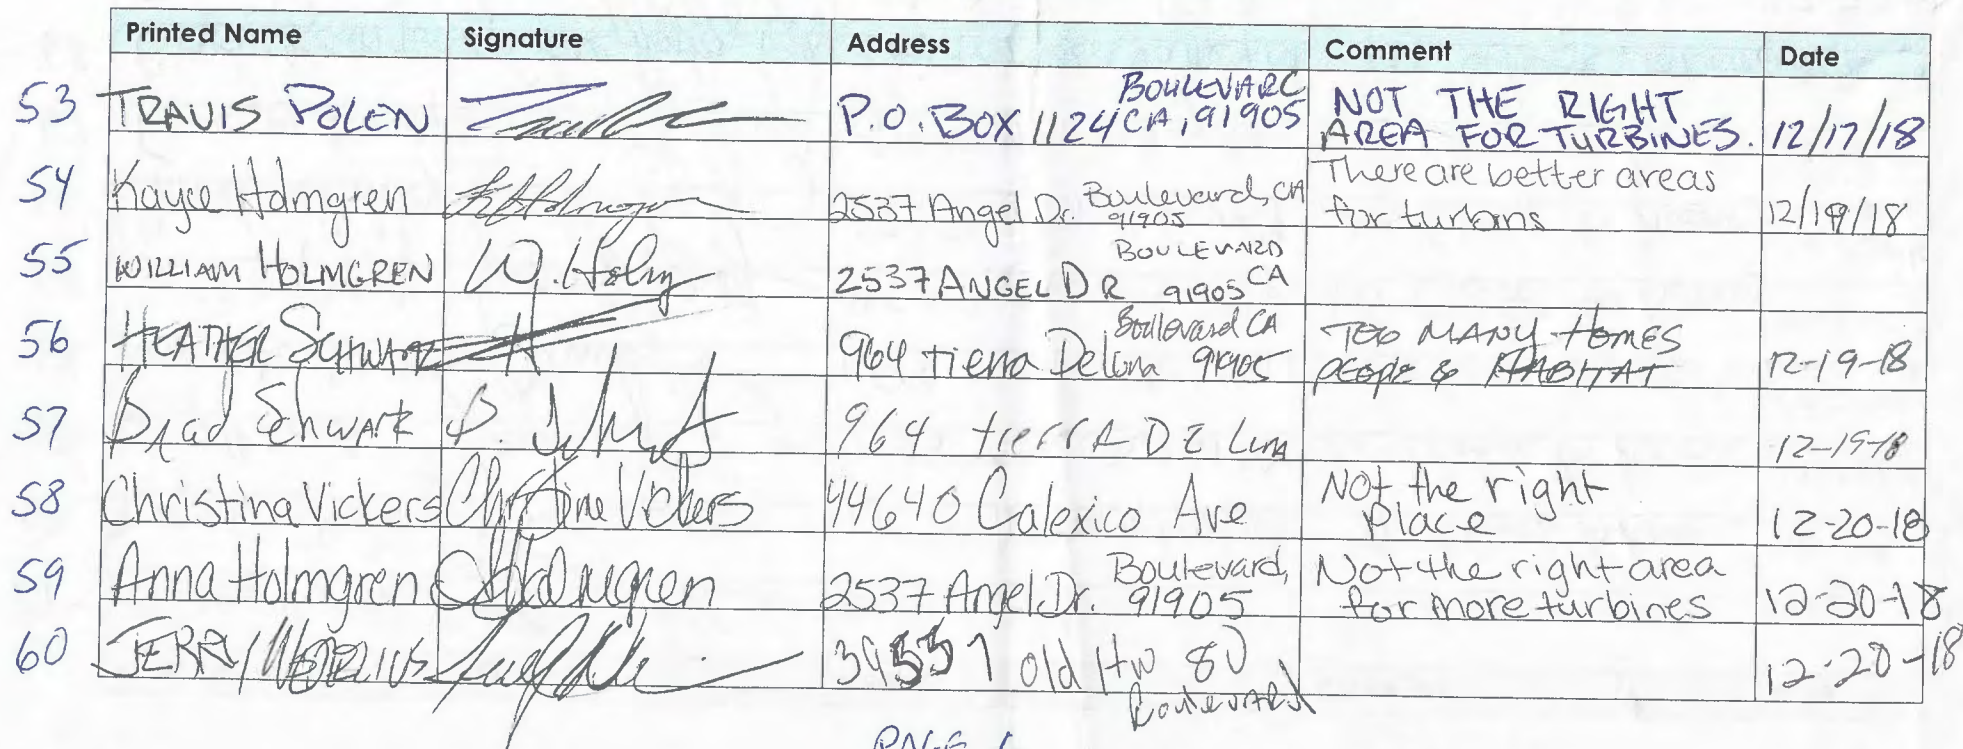 Printed Name Signature Address Comment Date
53 TRAVIS POLEN P.O. BOX 1124 BOULEVARD CA, 91905 NOT THE RIGHT AREA FOR TURBINES. 12/17/18
54 Kayce Holmgren 2537 Angel Dr. Boulevard, CA 91905 There are better areas for turbans 12/19/18
55 WILLIAM HOLMGREN W. Holm 2537 ANGEL DR BOULEVARD CA 91905
56 HEATHER SCHWARTZ H 964 tierra Deluna Boulevard CA 91905 TOO MANY HOMES PEOPLE & HABITAT 12-19-18
57 Brad Schwartz 964 tierrA DE LunA 12-19-18
58 Christina Vickers Christine Vickers 44640 Calexico Ave Not the right place 12-20-18
59 Anna Holmgren Holmgren 2537 Angel Dr. Boulevard, 91905 Not the right area for more turbines 12-20-18
60 JERRY 39557 old HW 80 Boulevard 12-20-18
PAGE